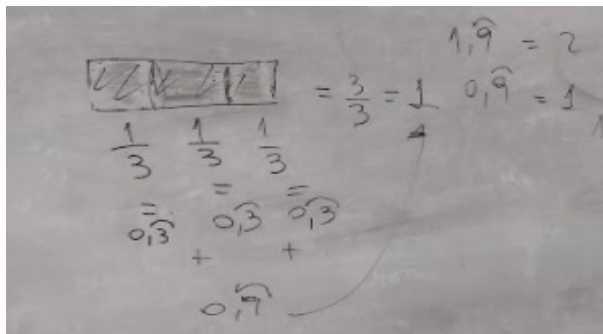 1,9̂ = 2
= 3/3 = 1
0,9̂ = 1
1/3 1/3 1/3
= = =
0,3̂ 0,3̂ 0,3̂
+ +
0,9̂